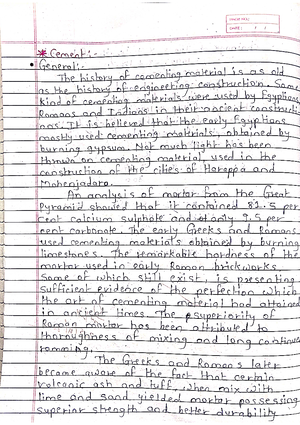 * Cement:-
• General:-
The history of cementing material is as old
as the history of engineering construction. Some
kind of cementing materials were used by Egyptians,
Romans and Indians in their ancient constructi
ons. It is believed that the early Egyptians
mostly used cementing materials, obtained by
burning gypsum. Not much light has been
thrown on cementing material, used in the
construction of the cities of Harappa and
Mohenjadaro.
An analysis of mortar from the Great
Pyramid showed that it contained 81.5 per
cent calcium sulphate and only 9.5 per
cent carbonate. The early Greeks and Romans
used cementing materials obtained by burning
limestones. The remarkable hardness of the
mortar used in early Roman brickworks,
Some of which still exist, is presenting
sufficient evidence of the perfection which
the art of cementing material had attained
in ancient times. The superiority of
Roman mortar has been attributed to
thoroughness of mixing and long continued
ramming.
The Greeks and Romans later
became aware of the fact that certain
volcanic ash and tuff, when mix with
lime and sand yielded mortar possessing
superior strength and better durability